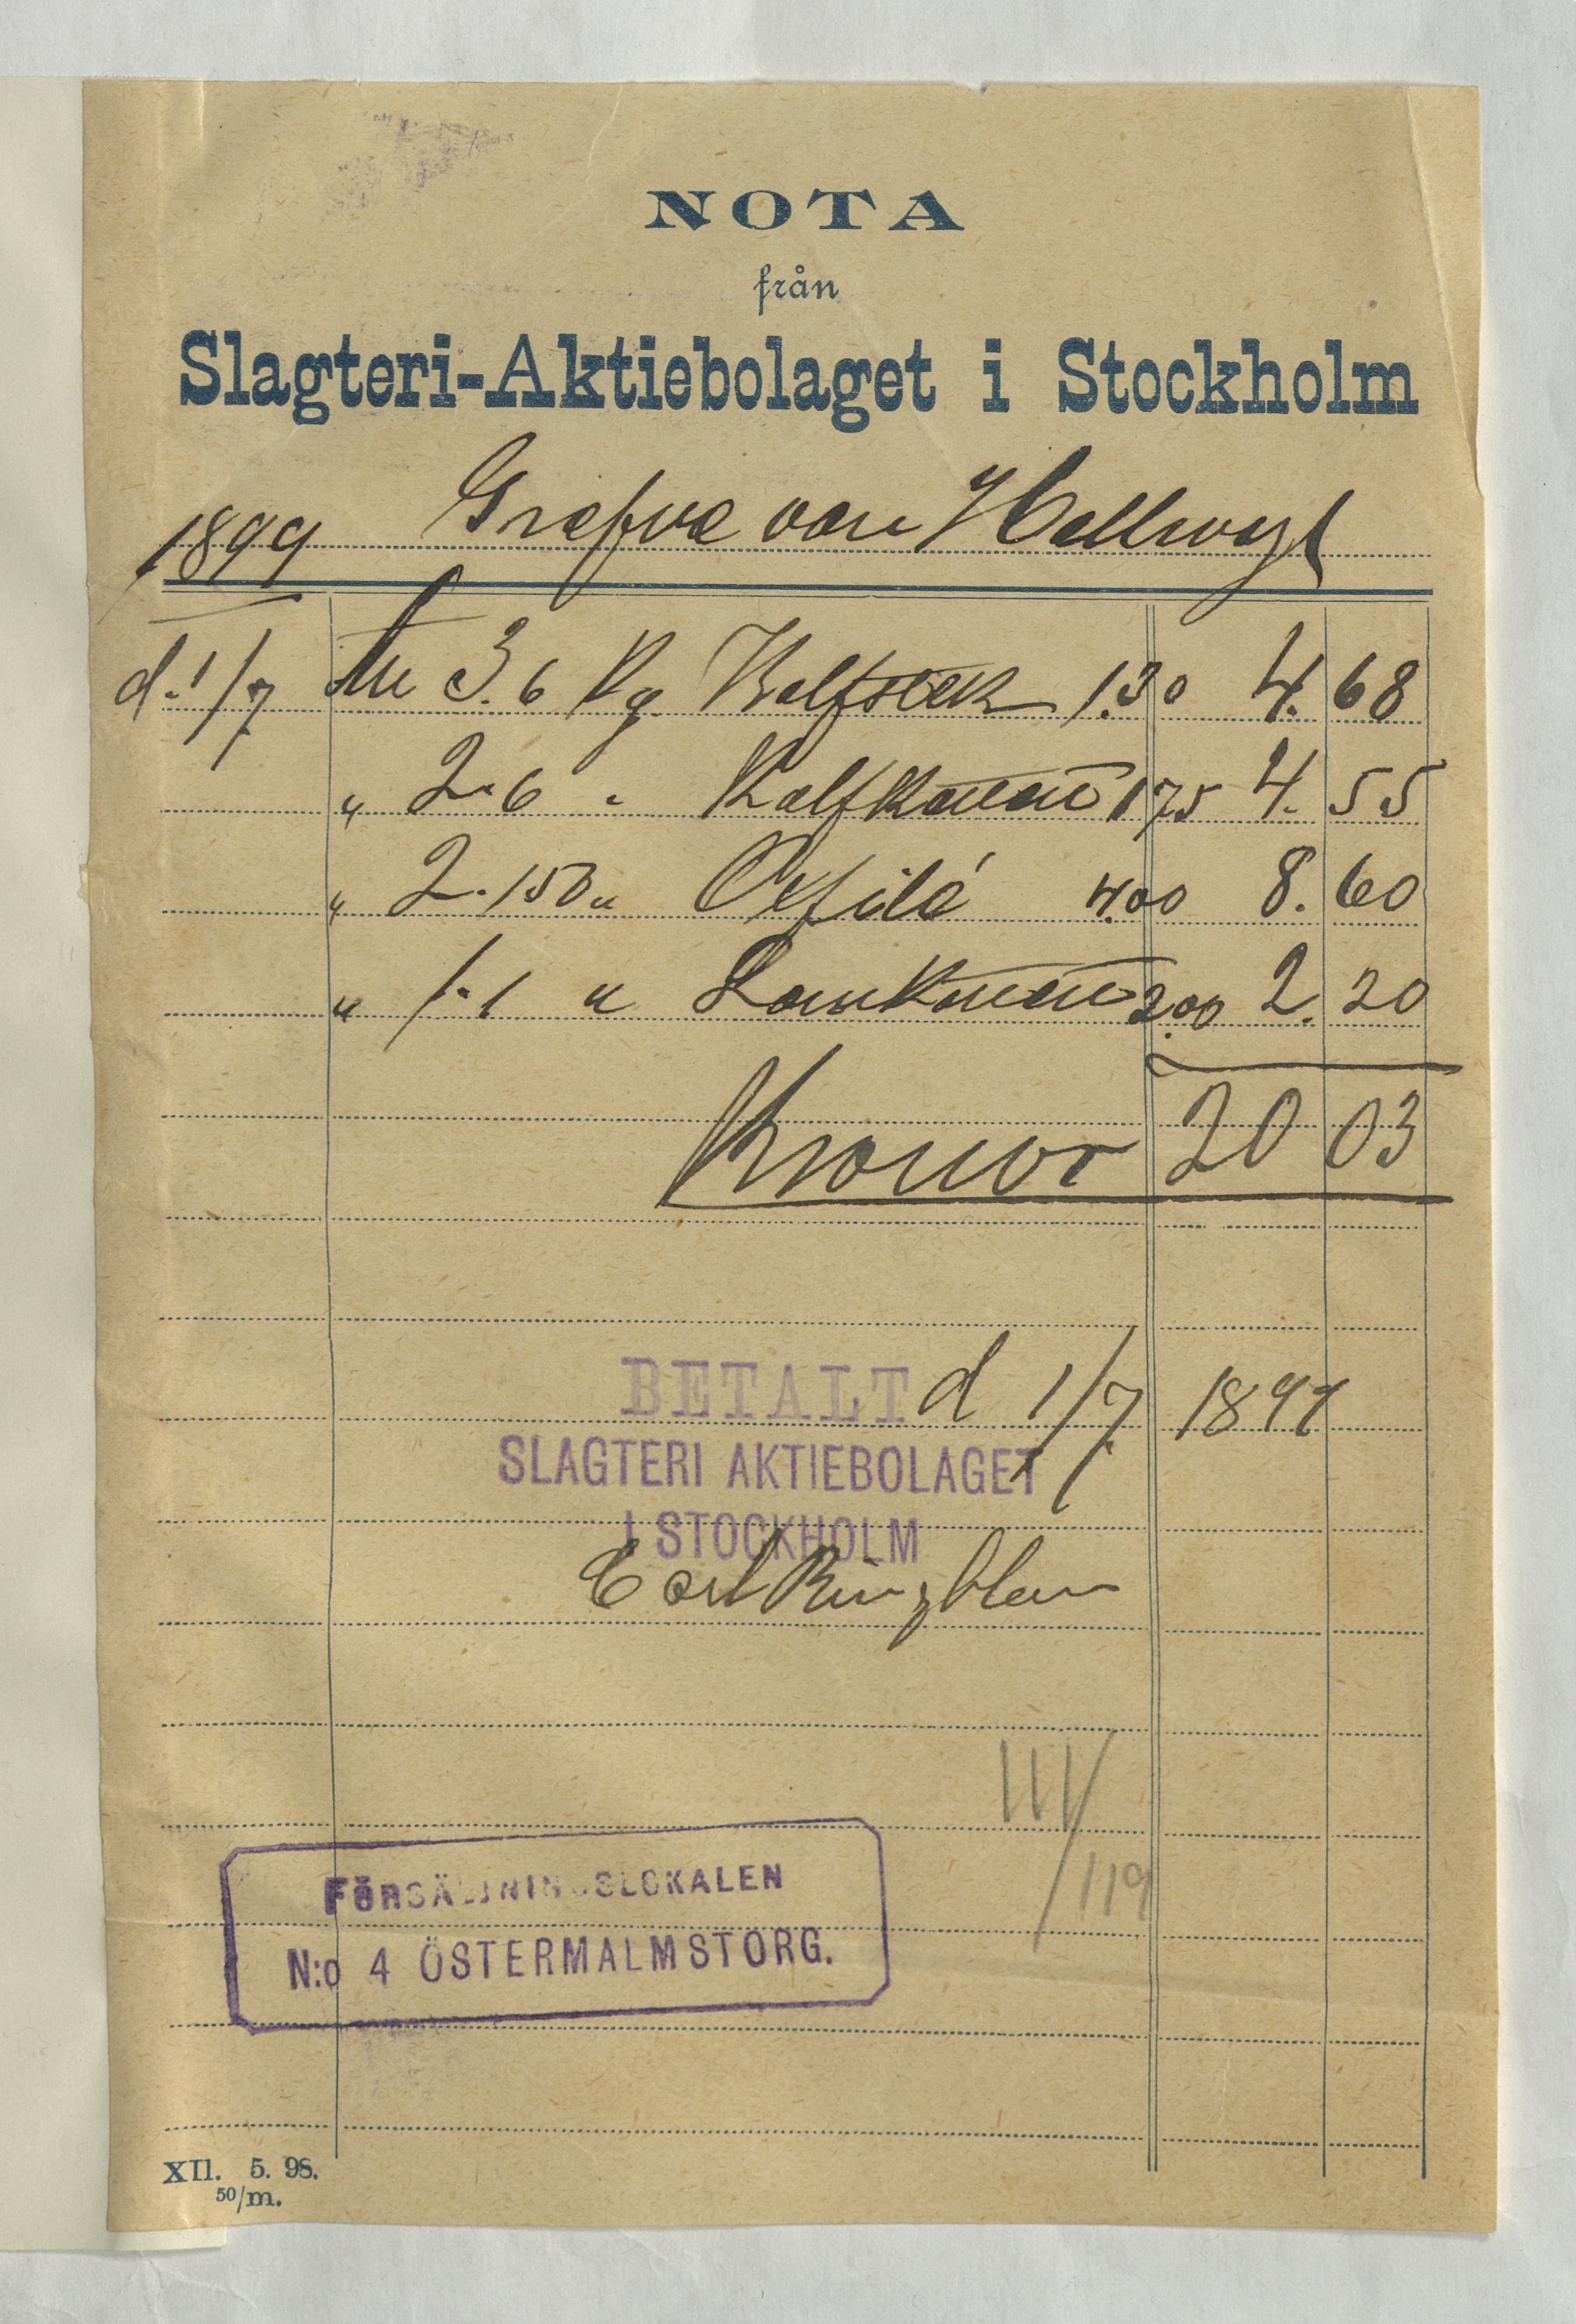 NOTA
från
Slagteri-Aktiebolaget i Stockholm
1899 Grefve von Hallwyl
d. 1/7 3.6 Kg Kalfstek 1.30 4.68
" 2.6 " Kalfkarrè 1 75 4.55
" 2.150 " Oxfilé 4.00 8.60
" 1.1 " Lamkarrè 2.00 2.20
Kronor 20 03
BETALT d 1/7 1899
SLAGTERI AKTIEBOLAGET
I STOCKHOLM
Carl Ringblom
111/119
FÖRSÄLJNINGSLOKALEN
N:o 4 ÖSTERMALMSTORG.
XII. 5. 98.
50/m.